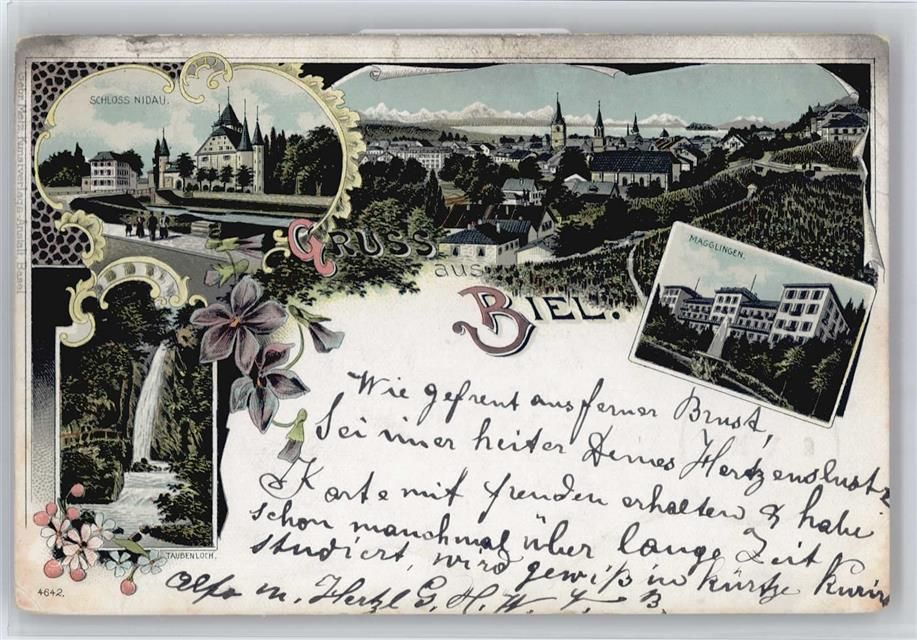 SCHLOSS NIDAU.
GRUSS
aus
BIEL.
MAGGLINGEN.
TAUBENLOCH.
4642.
Wie gefreut aus ferner Brust,
Sei imer heiter Deines Hertzenslust
Karte mit freuden erhalten & habe
schon manchmal über lange Zeit
studiert, wird gewiß in kürtze
Also m. Hertzl G. H. W. B.